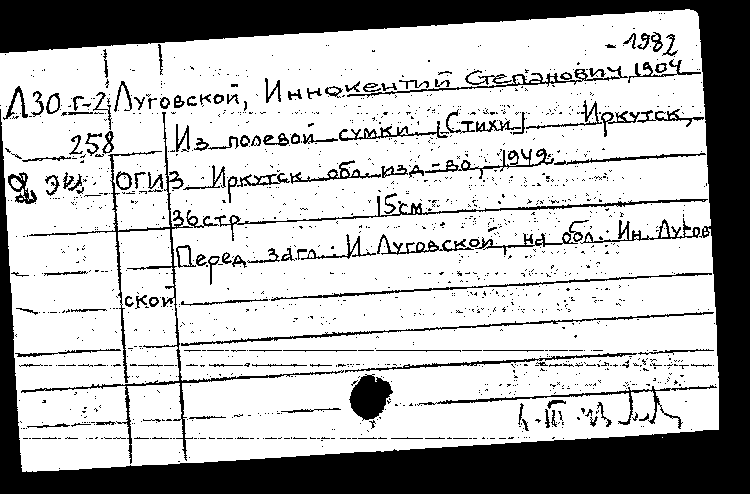 - 1982
Л30 г-2 Луговской, Иннокентий Степанович, 1904
258 Из полевой сумки. [Стихи] Иркутск,
экз ОГИЗ Иркутск. обл. изд-во, 1949.
36стр. 15см.
Перед загл.: И. Луговской, на обл.: Ин. Лугов
ской.